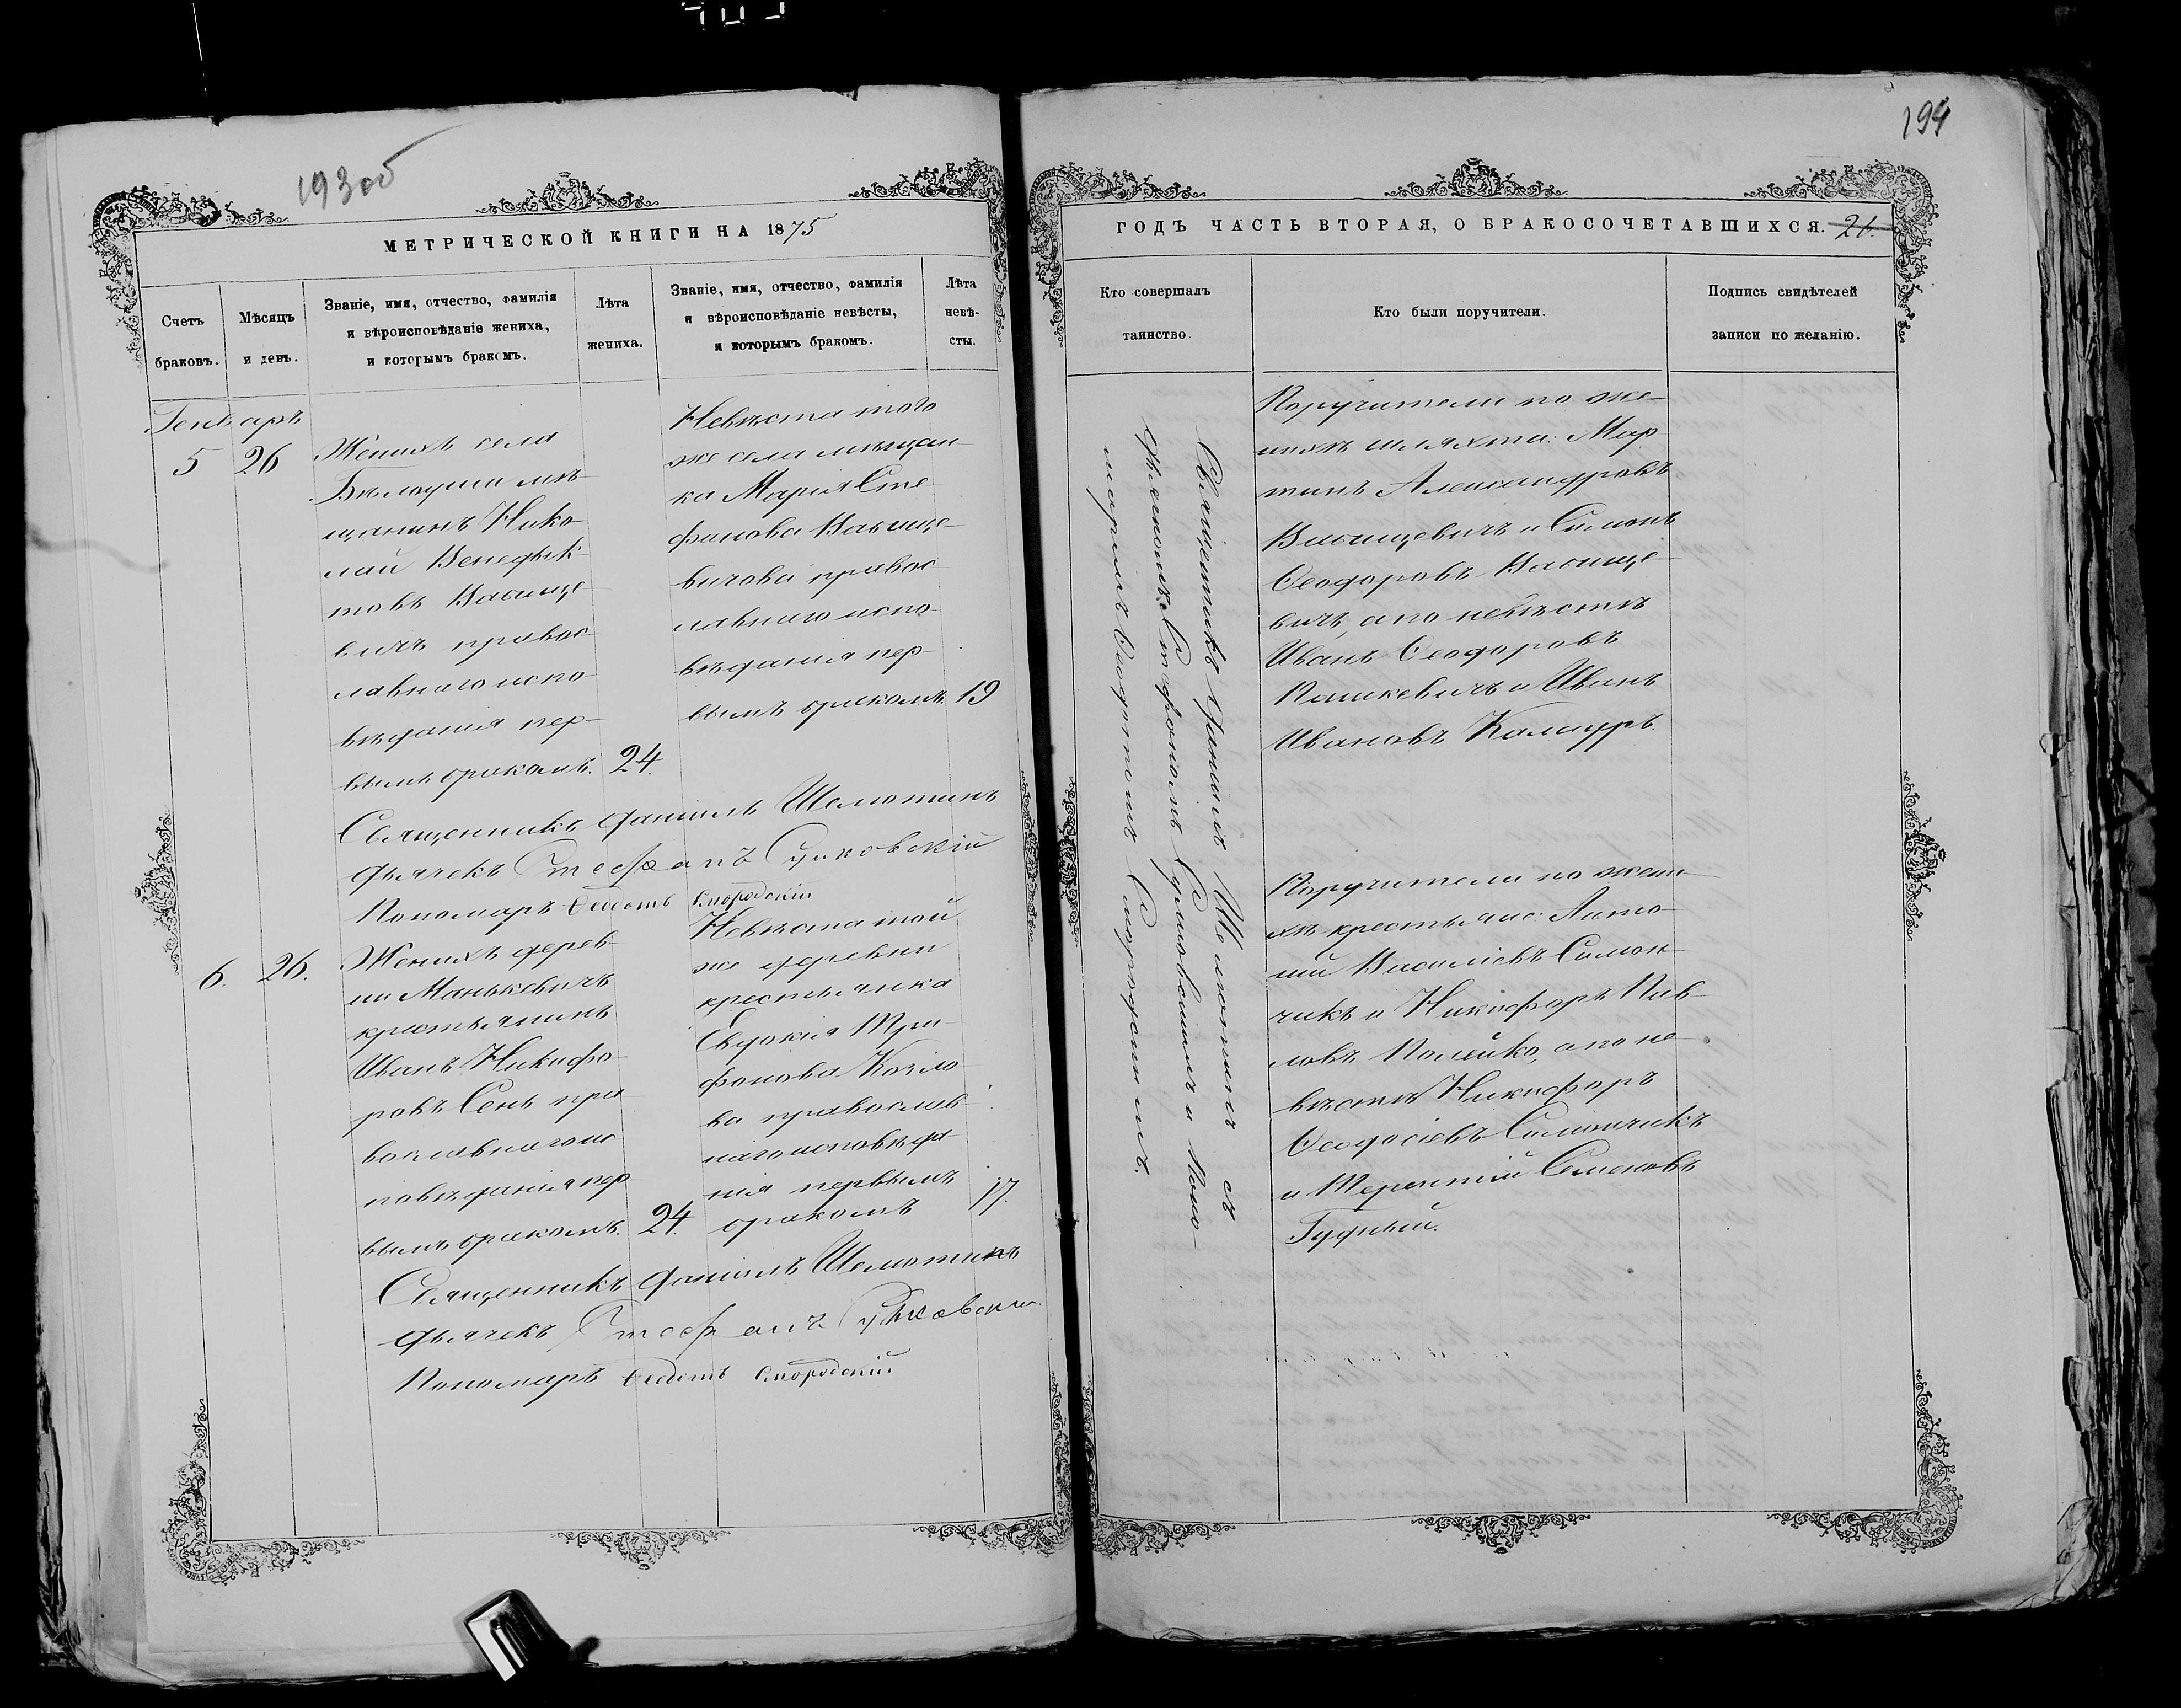 193об
МЕТРИЧЕСКОЙ КНИГИ НА 1875
Счетъ
браковъ.
Мѣсяцъ
и день.
Званіе, имя, отчество, фамилія
и вѣроисповѣданіе жениха,
и которымъ бракомъ.
Лѣта
жениха.
Званіе, имя, отчество, фамилія
и вѣроисповѣданіе невѣсты,
и которымъ бракомъ.
Лѣта
невѣ-
сты.
Генварь
5
26
Женихъ села
Бѣлоуши мѣ-
щанинъ Нико-
лай Венедик-
товъ Васище-
вичъ правос-
лавнаго испо-
вѣданія пер-
вымъ бракомъ.
24.
Невѣста того
же села мѣщан-
ка Марія Сте-
фанова Васище-
вичова правос-
лавнаго испо-
вѣданія пер-
вымъ бракомъ.
19
Священникъ Даніилъ Шеметилъ
Дьячекъ Стефанъ
Пономарь Ѳеодотъ Смородскій
6.
26.
Женихъ дерев-
ни Манькевичъ
крестьянинъ
Иванъ Никифо-
ровъ Сень пра-
вославнаго ис-
повѣданія пер-
вымъ бракомъ.
24.
Невѣста той
же деревни
крестьянка
Евдокія Три-
фонова Козло-
ва православ-
наго исповѣда-
нія первымъ
бракомъ
17.
Священникъ Даніилъ Шеметилъ
Дьячекъ Стефанъ
Пономарь Ѳеодотъ Смородскій
194
ГОДЪ ЧАСТЬ ВТОРАЯ, О БРАКОСОЧЕТАВШИХСЯ. 21.
Кто совершалъ
таинство.
Кто были поручители.
Подпись свидѣтелей
записи по желанію.
Священникъ Даніилъ Шеметилъ съ
Дьячкомъ Стефаномъ и Поно-
маремъ Ѳеодотомъ Смородскимъ.
Поручители по же-
нихѣ шляхта: Мар-
тинъ Александровъ
Васищевичъ и Симонъ
Ѳеодоровъ Васище-
вичъ, а по невѣстѣ
Иванъ Ѳеодоровъ
Пашкевичъ и Иванъ
Ивановъ Каламуръ.
Поручители по жени-
хѣ крестьяне: Анто-
ній Василіевъ Симон-
чикъ и Никифоръ Пав-
ловъ Полейко, а по не-
вѣстѣ Никифоръ
Ѳеодосіевъ Симончикъ
и Терентій Семеновъ
Гудный.